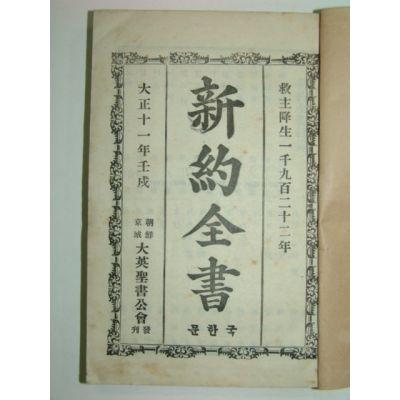 救主降生一千九百二十二年
新約全書
국한문
大正十一年壬戌
朝鮮京城大英聖書公會發刊